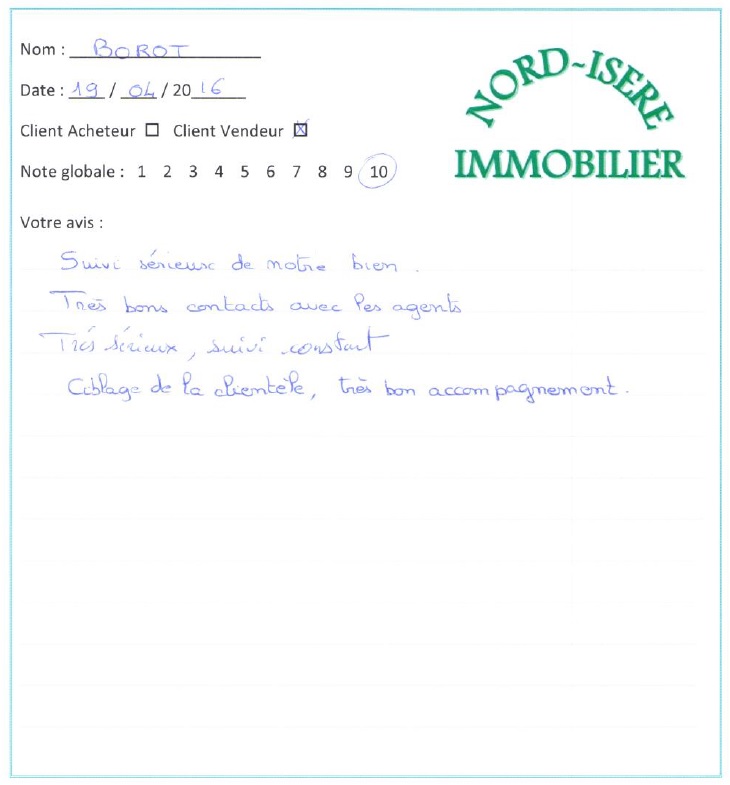 Nom : BOROT
NORD-ISERE
Date : 19 / 04 / 2016
Client Acheteur ☐ Client Vendeur ☒
IMMOBILIER
Note globale : 1 2 3 4 5 6 7 8 9 10
Votre avis :
Suivi sérieux de notre bien.
Très bons contacts avec les agents
Très sérieux, suivi constant
Ciblage de la clientèle, très bon accompagnement.